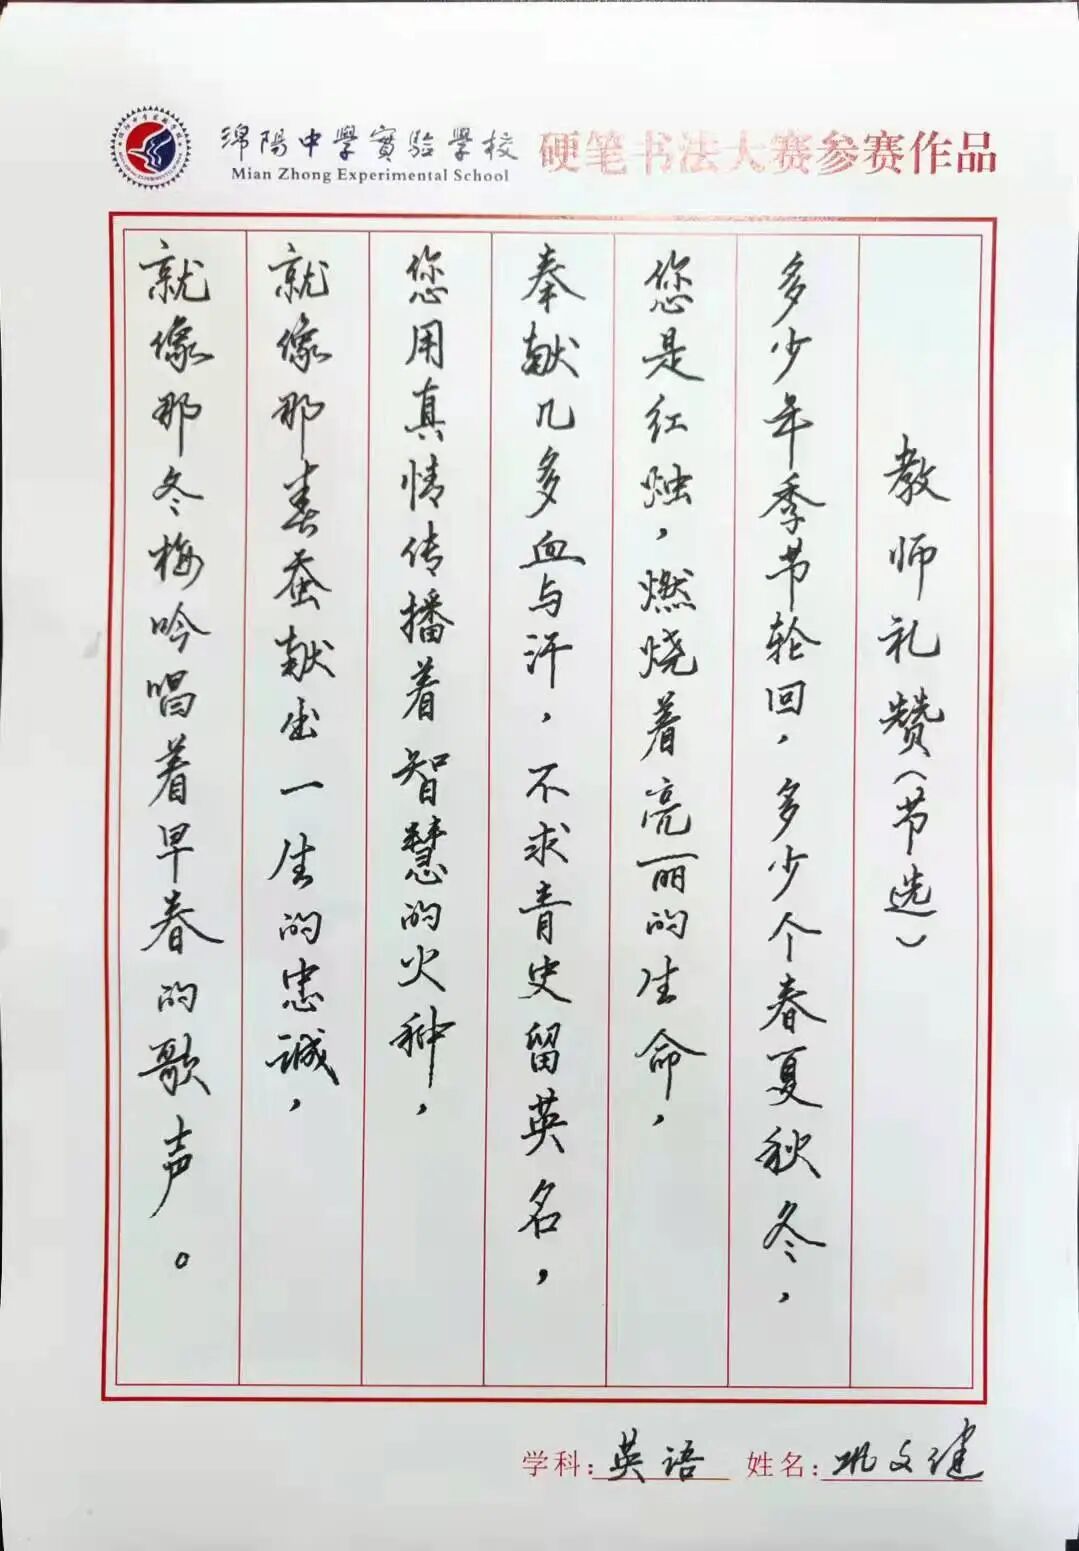 綿陽中學實驗學校
Mian Zhong Experimental School
硬笔书法大赛参赛作品
教师礼赞(节选)
多少年季节轮回,多少个春夏秋冬,
您是红烛,燃烧着亮丽的生命,
奉献几多血与汗,不求青史留英名,
您用真情传播着智慧的火种,
就像那春蚕献出一生的忠诚,
就像那冬梅吟唱着早春的歌声。
学科:英语 姓名:巩文健